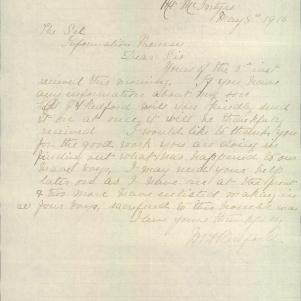 Mt McIntyre
May 8th 1916
The Sec
Information Bureau
Dear Sir
Yours of the 3rd inst
received this morning. If you have
any information about my son
P H Redford will you kindly send
it on at once, it will be thankfully
received. I would like to thank you
for the good work you are doing in
finding out what has happened to our
brave boys. I may need your help
later on as I have one at the front
& two more have enlisted making in
all four boys, sacrificed to this
I am yours